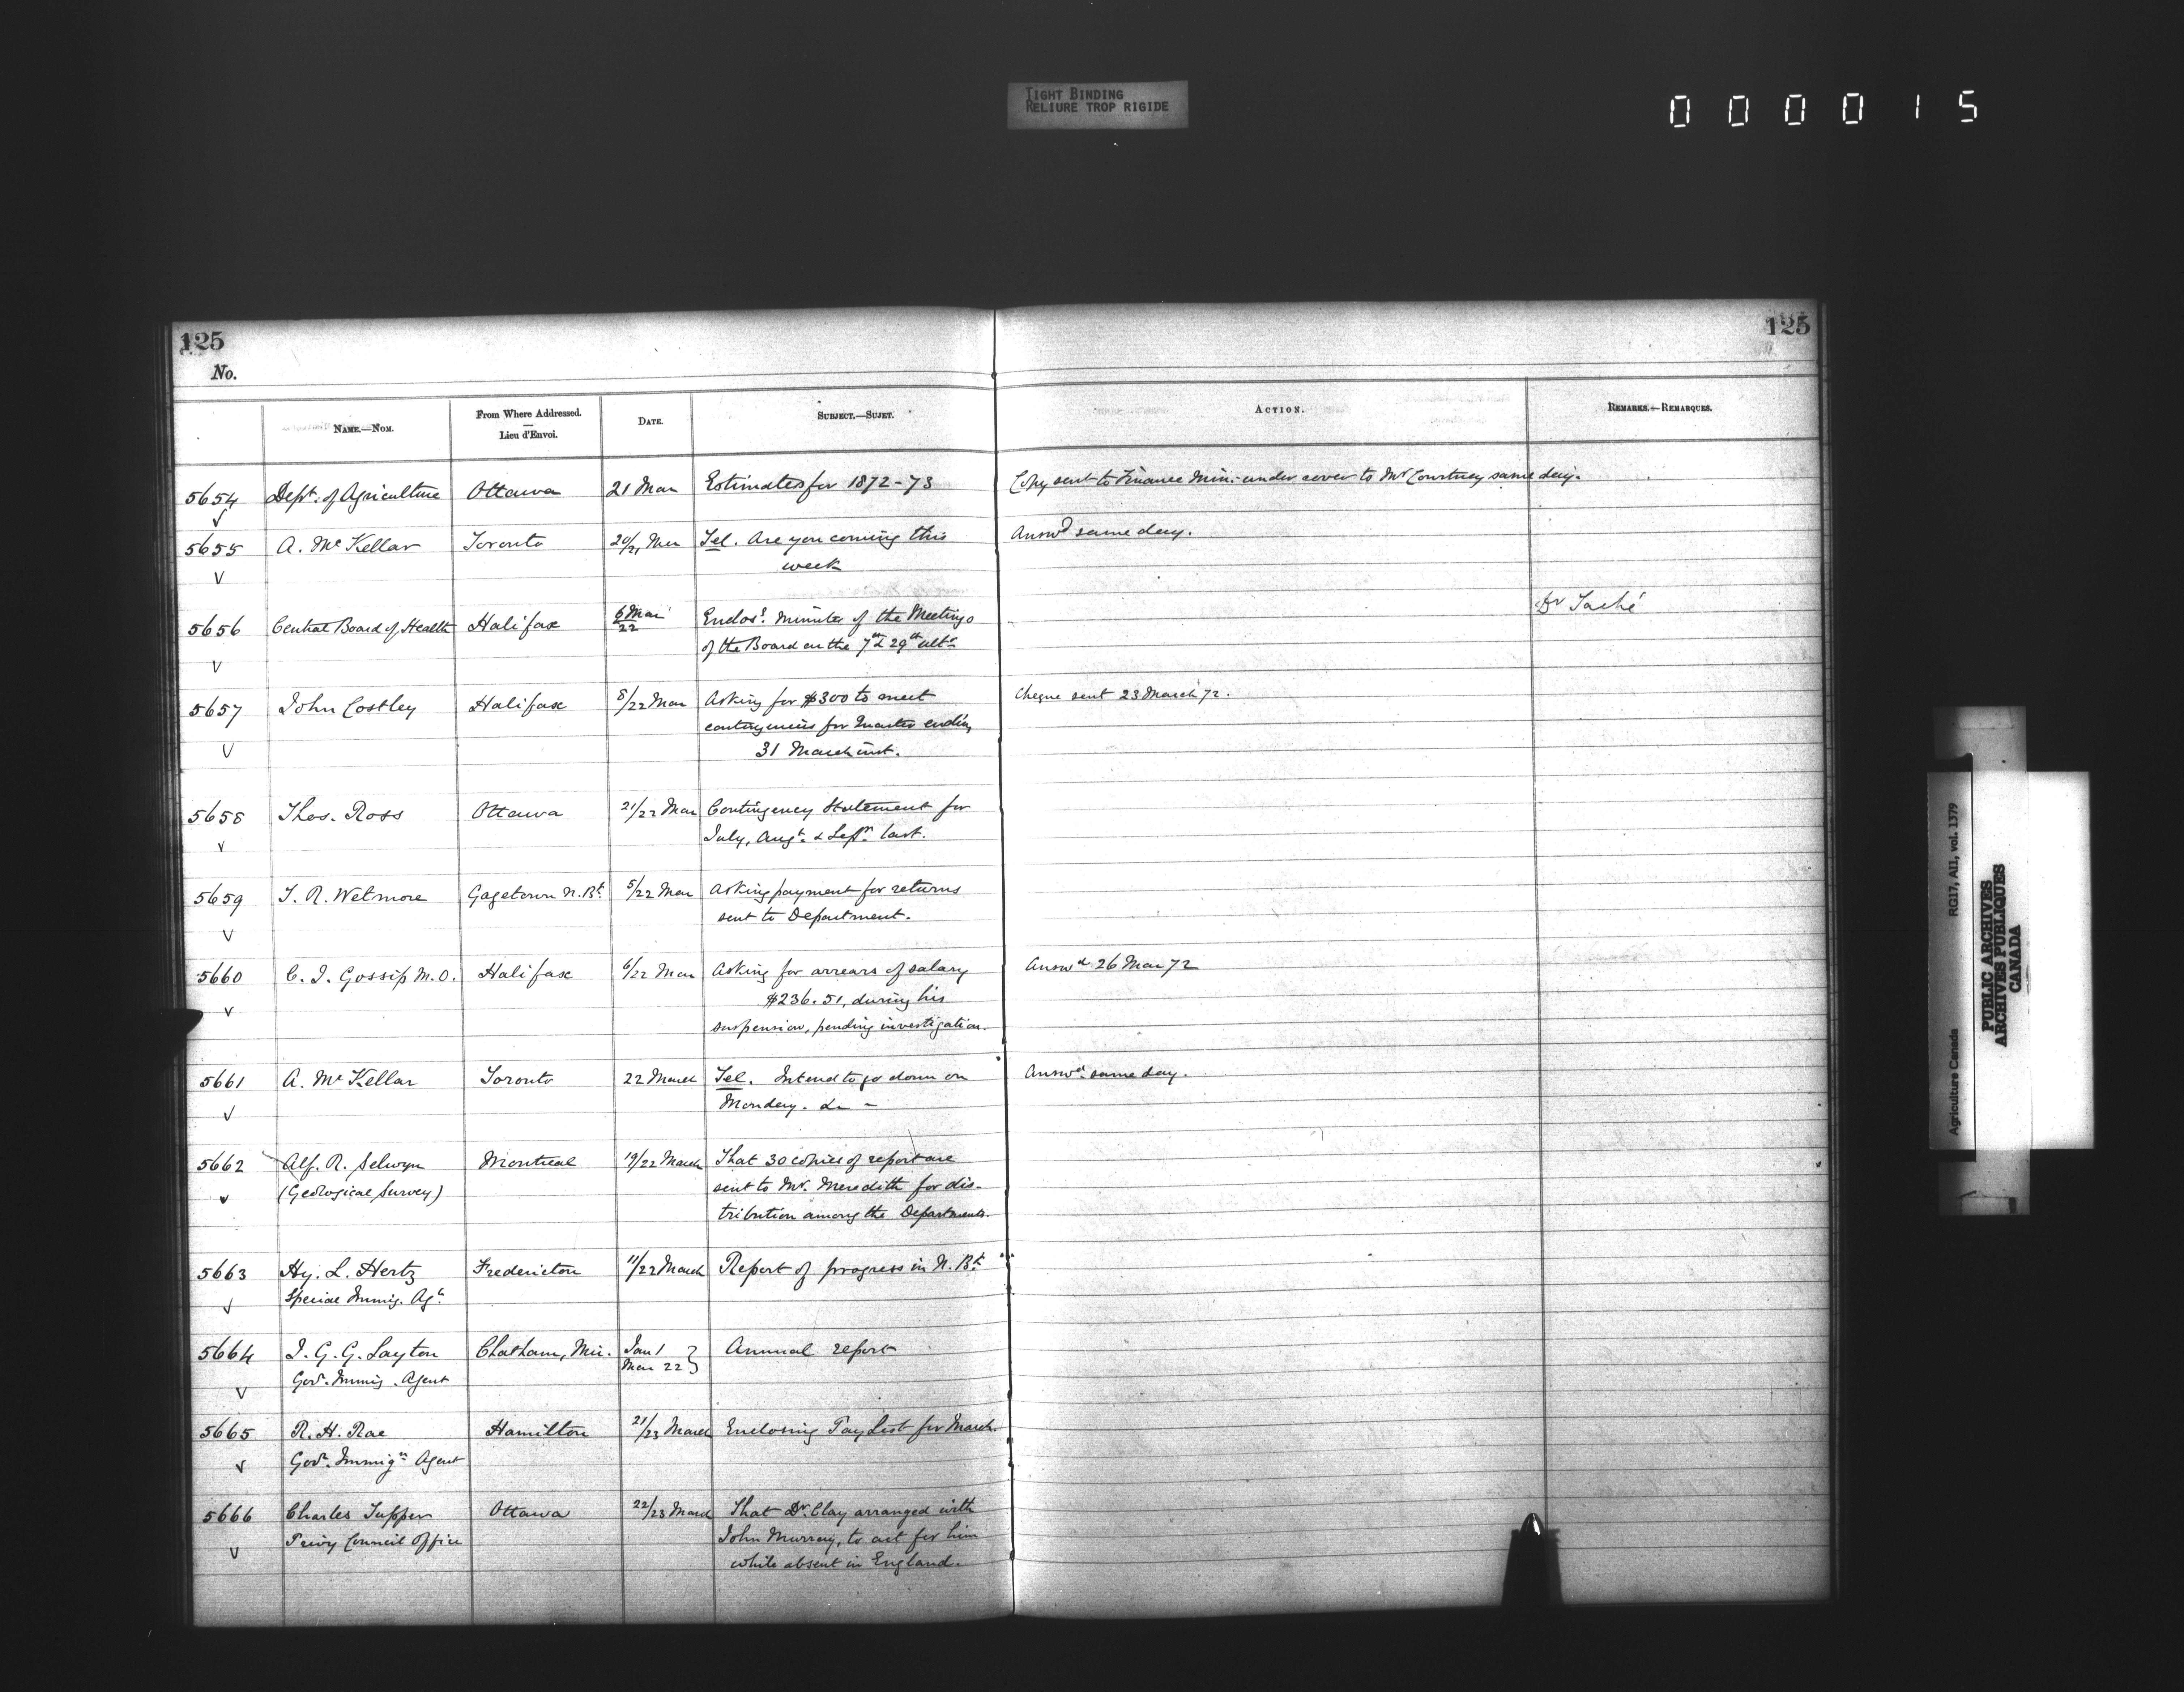 TIGHT BINDING
RELIURE TROP RIGIDE
000015
125
125
No.
NAME.—NOM.
From Where Addressed.
—
Lieu d'Envoi.
DATE.
SUBJECT.—SUJET.
ACTION.
REMARKS.—REMARQUES.
5654 Dept. of Agriculture Ottawa 21 Mar Estimates for 1872-73 Copy sent to Finance Min. under cover to Mr Courtney same day.
5655 A. McKellar Toronto 20/21 Mar Tel. Are you coming this Answd same day.
week
Dr Taché
5656 Central Board of Health Halifax 6 Mar Enclosg. Minutes of the Meetings
22 of the Board on the 7th & 29th ulto
5657 John Costley Halifax 8/22 Mar Asking for $300 to meet Cheque sent 23 March 72.
contingencies for Quarter ending
31 March inst.
5658 Thos. Ross Ottawa 21/22 Mar Contingency Statement for
July, Augt. & Sepr. last.
5659 T. R. Wetmore Gagetown N. Bk. 5/22 Mar Asking payment for returns
sent to Department.
5660 C. I. Gossip M.O. Halifax 6/22 Mar Asking for arrears of salary Answd 26 Mar 72
$236.51, during his
suspension, pending investigation.
5661 A. McKellar Toronto 22 March Tel. Intend to go down on Answd. same day.
Monday. &c -
5662 Alf. R. Selwyn Montreal 19/22 March That 30 copies of report are
(Geological Survey) sent to Mr. Meredith for dis-
tribution among the Departments.
5663 Hy. L. Hertz Fredericton 11/22 March Report of progress in N. Bk.
Special Immig. Agt.
5664 J. G. G. Layton Chatham, Mir. Jan 1 Annual report
Gov. Immig. Agent Mar 22
5665 R. H. Rae Hamilton 21/23 March Enclosing Pay List for March.
Govt. Immign Agent
5666 Charles Tupper Ottawa 22/23 March That Dr. Clay arranged with
Privy Council Office John Murray, to act for him
while absent in England.
Agriculture Canada RG17, AII, vol. 1379
PUBLIC ARCHIVES
ARCHIVES PUBLIQUES
CANADA